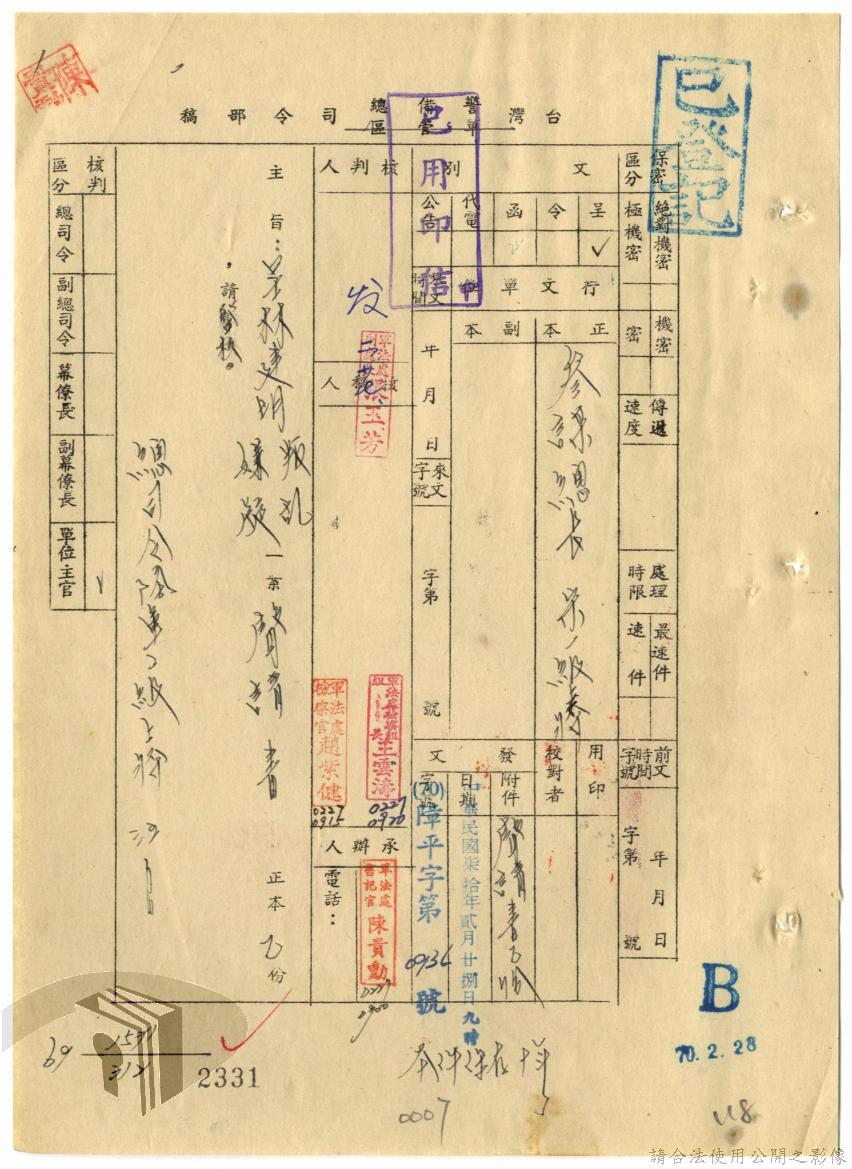 台灣警備總司令部稿
軍管區
已用印信
已登記
保密區分
絕對機密
極機密
機密
密
傳遞速度
處理時限
最速件
速件
前文
時間
字號
年月日
字第 號
文別
呈
令
函
代電
公告
行文單位
正本
副本
參謀總長宋一級上將
發文時間
年 月 日
來文字號
字第 號
用印
校對者
發文
附件
聲請書乙份
日期
中華民國柒拾年貳月廿捌日九時
字號
(70)障平字第 0936 號
核判人
发
核稿人
軍法處副處長
玉芳
軍法處檢察組組長王雲濤
0227
0920
軍法處檢察官趙紫健
0227
0915
承辦人
軍法處書記官陳貴勳
0227
0900
電話：
主旨：呈林建明叛乱嫌疑一案聲請書正本乙份
，請鑒核。
總司令陸軍二級上將汪
核判區分
總司令
副總司令
幕僚長
副幕僚長
單位主官
69
1531
312
2331
本件保存十年
0007
B
70.2.28
118
請合法使用公開之影像